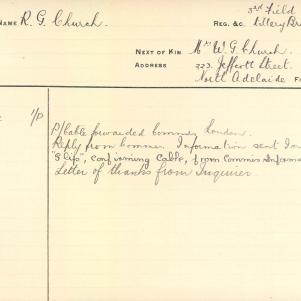 3rd Field
NAME R. G. Church. REG. &C. Artillery Br
NEXT OF KIN Mr W. G. Church.
ADDRESS 223. Jeffcott Street.
North Adelaide F
1/P
P/Cable forwarded Commr, London.
Reply from Commr. Information sent In
"Slip", confirming Cable, from Commis. Informa
Letter of thanks from Inquirer.